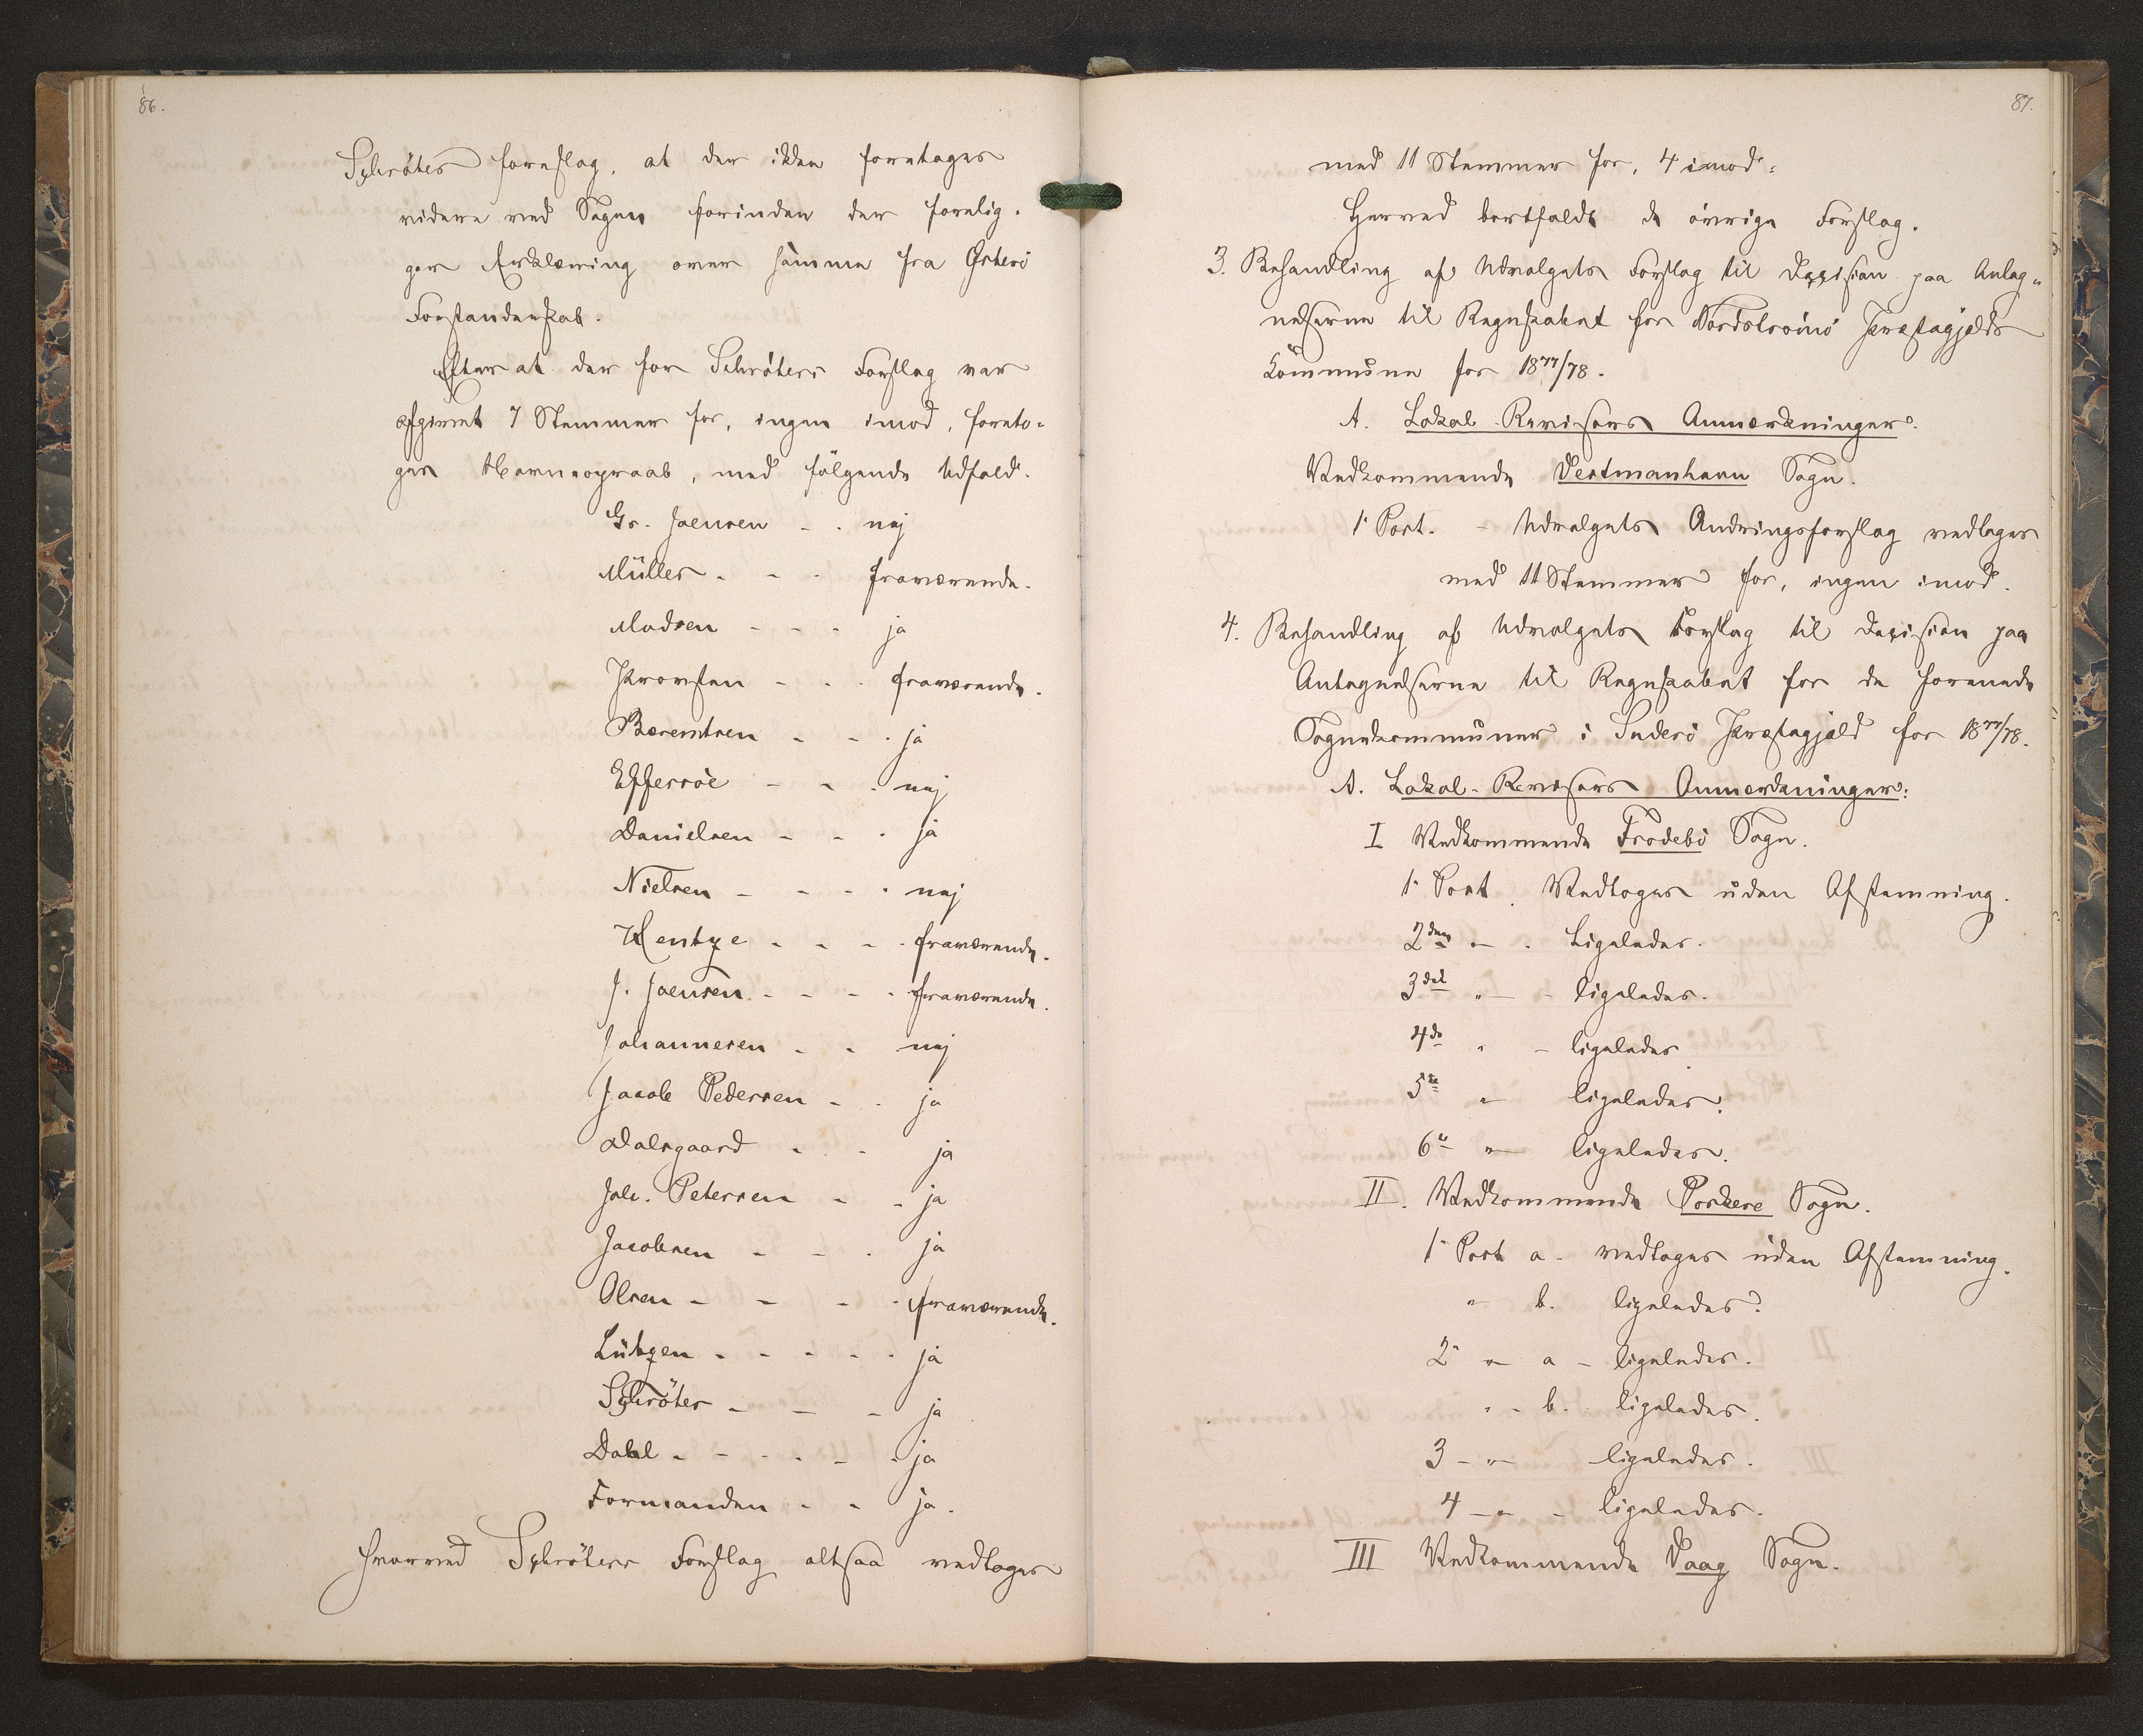 86.
Schröters Forslag, at der ikke foretages
videre ved Sagen forinden der forelig-
ger Erklæring over samme fra Østerö
Forstanderskab.
Efter at der for Schröters Forslag var
afgivet 7 Stemmer for, ingen imod, foreto-
ges Navneopraab, med fölgende Udfald.
Gr. Joensen - - nej
Müller - - - fraværende.
Madsen - - - ja
Provsten - - - fraværende.
Berentsen - - - ja
Effersöe - - - nej
Danielsen - - - ja
Nielsen - - - - nej
Hentze - - - - fraværende.
J. Joensen - - - - fraværende.
Johannesen - - nej
Jacob Pedersen - - ja
Dalsgaard - - ja
Joh. Petersen - - ja
Jacobsen - - - ja
Olsen - - - - fraværende.
Lützen - - - - - ja
Schröter - - - ja
Dahl - - - - - - ja
Formanden - - ja.
hvorved Schröters Forslag altsaa vedtoges
87.
med 11 Stemmer for, 4 imod.
Herved bortfaldt de övrige Forslag.
3. Behandling af Udvalgets Forslag til Decision paa Antag-
nelserne til Regnskabet for Nordströmö Præstegjælds
Kommune for 1877/78.
A. Lokal-Revisors Anmærkninger.
Vedkommende Vestmanhavn Sogn.
1' Post. - Udvalgets Ændringsforslag vedtoges
med 11 Stemmer for, ingen imod.
4. Behandling af Udvalgets Forslag til Decision paa
Antagnelserne til Regnskabet for de forenede
Sognekommuner i Suderö Præstegjæld for 1877/78.
A. Lokal-Revisors Anmærkninger:
I Vedkommende Frodebö Sogn.
1' Post. Vedtoges uden Afstemning.
2den " - Ligeledes.
3die " - ligeledes.
4de " - ligeledes
5te " ligeledes.
6te " ligeledes.
II. Vedkommende Porkere Sogn.
1' Post a - vedtoges uden Afstemning.
" b. ligeledes.
2' " a - ligeledes.
" - b. ligeledes.
3 - " - ligeledes.
4 - " - ligeledes.
III Vedkommende Vaag Sogn.